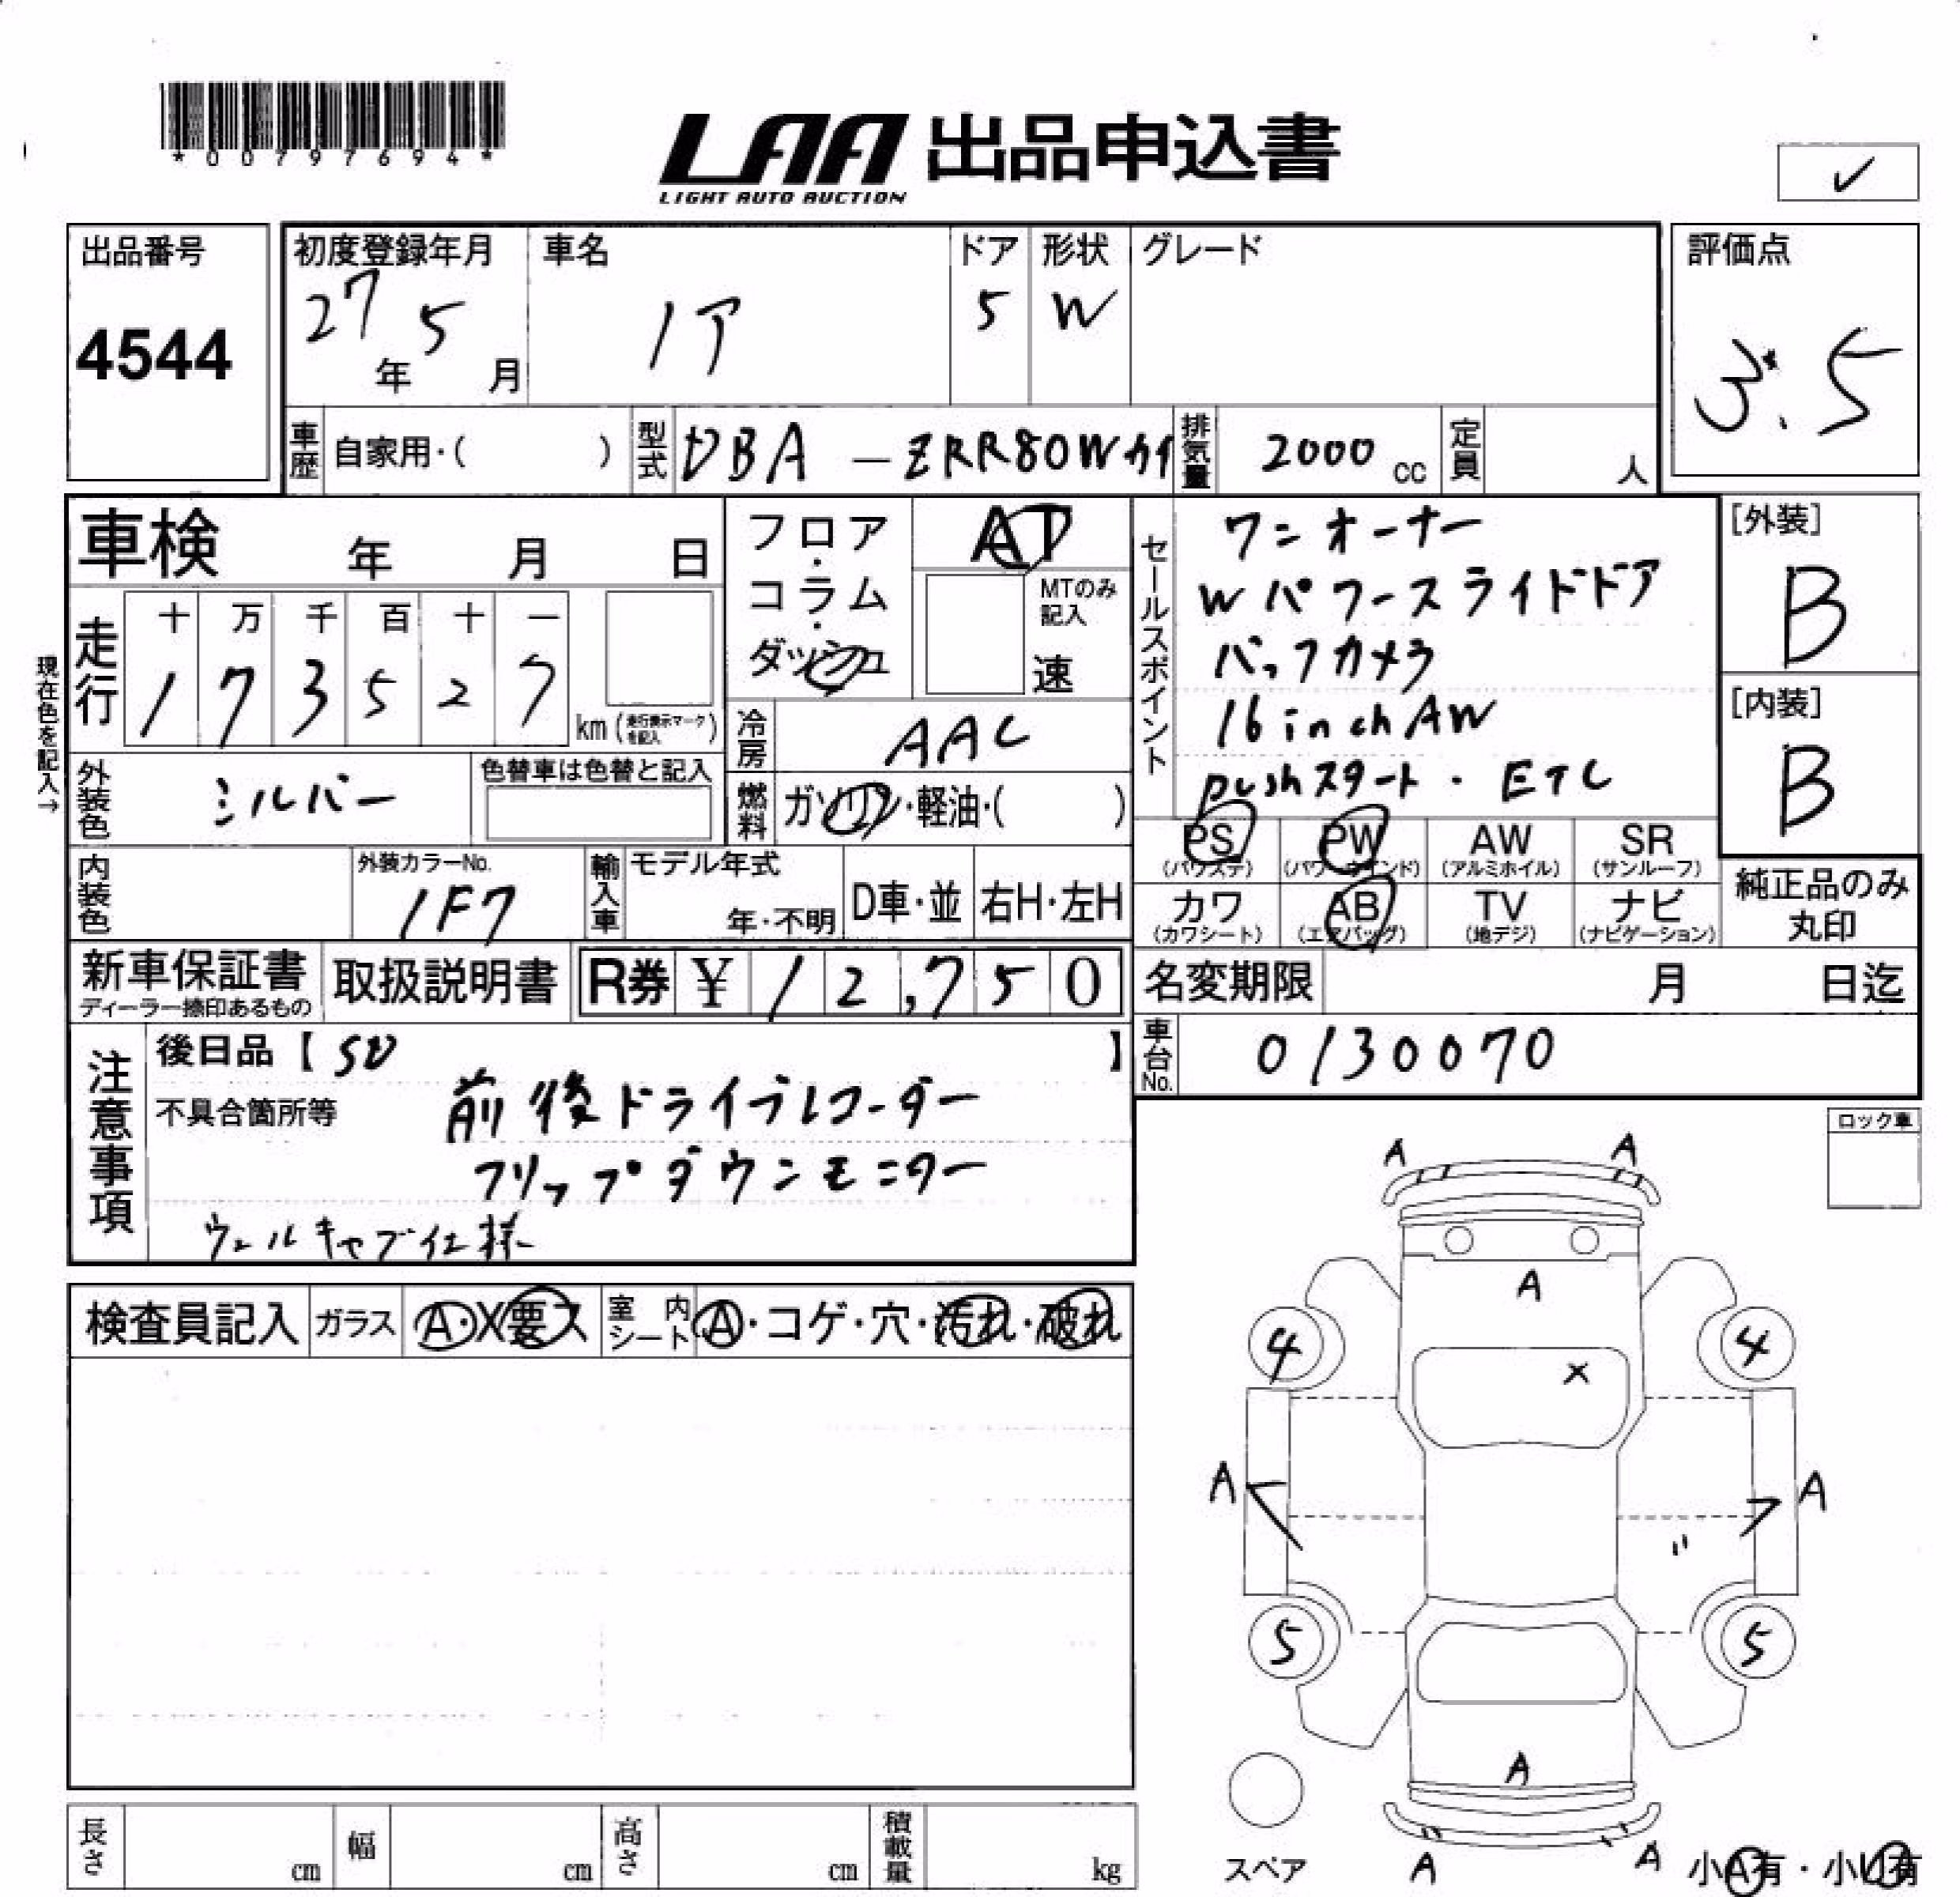 *00797694*
LAA 出品申込書
LIGHT AUTO AUCTION
✓
出品番号
4544
初度登録年月
27年 5月
車名
ノア
ドア
5
形状
W
グレード
評価点
3.5
車歴 自家用・( )
型式 DBA-ZRR80Wカイ
排気量 2000 cc
定員 人
車検 年 月 日
フロア・コラム・ダッシュ
AT
MTのみ記入
速
セールスポイント
ワンオーナー
Wパワースライドドア
バックカメラ
16inchAW
pushスタート・ETC
[外装]
B
[内装]
B
現在色を記入→
走行
十 万 千 百 十 一
1 7 3 5 2 7
km (走行表示マークを記入)
冷房 AAC
外装色 シルバー
色替車は色替と記入
燃料 ガソリン・軽油・( )
PS (パワステ)
PW (パワーウインド)
AW (アルミホイル)
SR (サンルーフ)
カワ (カワシート)
AB (エアバッグ)
TV (地デジ)
ナビ (ナビゲーション)
純正品のみ丸印
内装色
外装カラーNo.
1F7
輸入車
モデル年式
年・不明
D車・並
右H・左H
新車保証書
ディーラー捺印あるもの
取扱説明書
R券 ¥ 12,750
名変期限 月 日迄
車台No. 0130070
注意事項
後日品【SD 】
不具合箇所等
前後ドライブレコーダー
フリップダウンモニター
ウェルキャブ仕様
ロック車
検査員記入
ガラス A・X要ス
室内シート A・コゲ・穴・汚れ・破れ
A A
A
4 4
X
A A
5 5
A
A A
スペア
小A有・小U有
長さ cm
幅 cm
高さ cm
積載量 kg